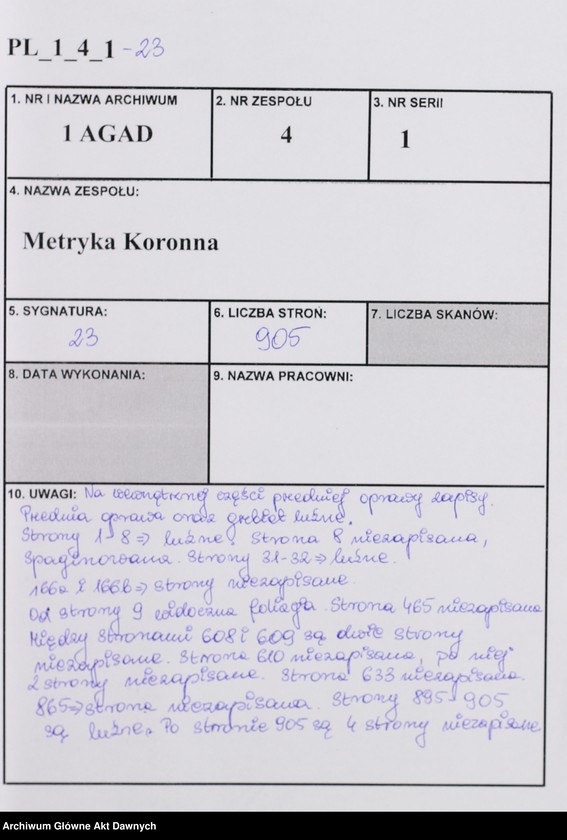 PL_1_4_1-23
1. NR I NAZWA ARCHIWUM
1 AGAD
2. NR ZESPOŁU
4
3. NR SERII
1
4. NAZWA ZESPOŁU:
Metryka Koronna
5. SYGNATURA:
23
6. LICZBA STRON:
905
7. LICZBA SKANÓW:
8. DATA WYKONANIA:
9. NAZWA PRACOWNI:
10. UWAGI: Na wewnętrznej części przedniej oprawy zapisy.
Przednia oprawa oraz grzbiet luźne.
Strony 1-8 => luźne. Strona 8 niezapisana,
spaginowana. Strony 31-32 => luźne.
166a i 166b => strony niezapisane.
Od strony 9 widoczna foliacja. Strona 465 niezapisana
Między stronami 608 i 609 są dwie strony
niezapisane. Strona 610 niezapisana, po niej
2 strony niezapisane. Strona 633 niezapisana.
865 => strona niezapisana. Strony 895-905
są luźne. Po stronie 905 są 4 strony niezapisane
Archiwum Główne Akt Dawnych